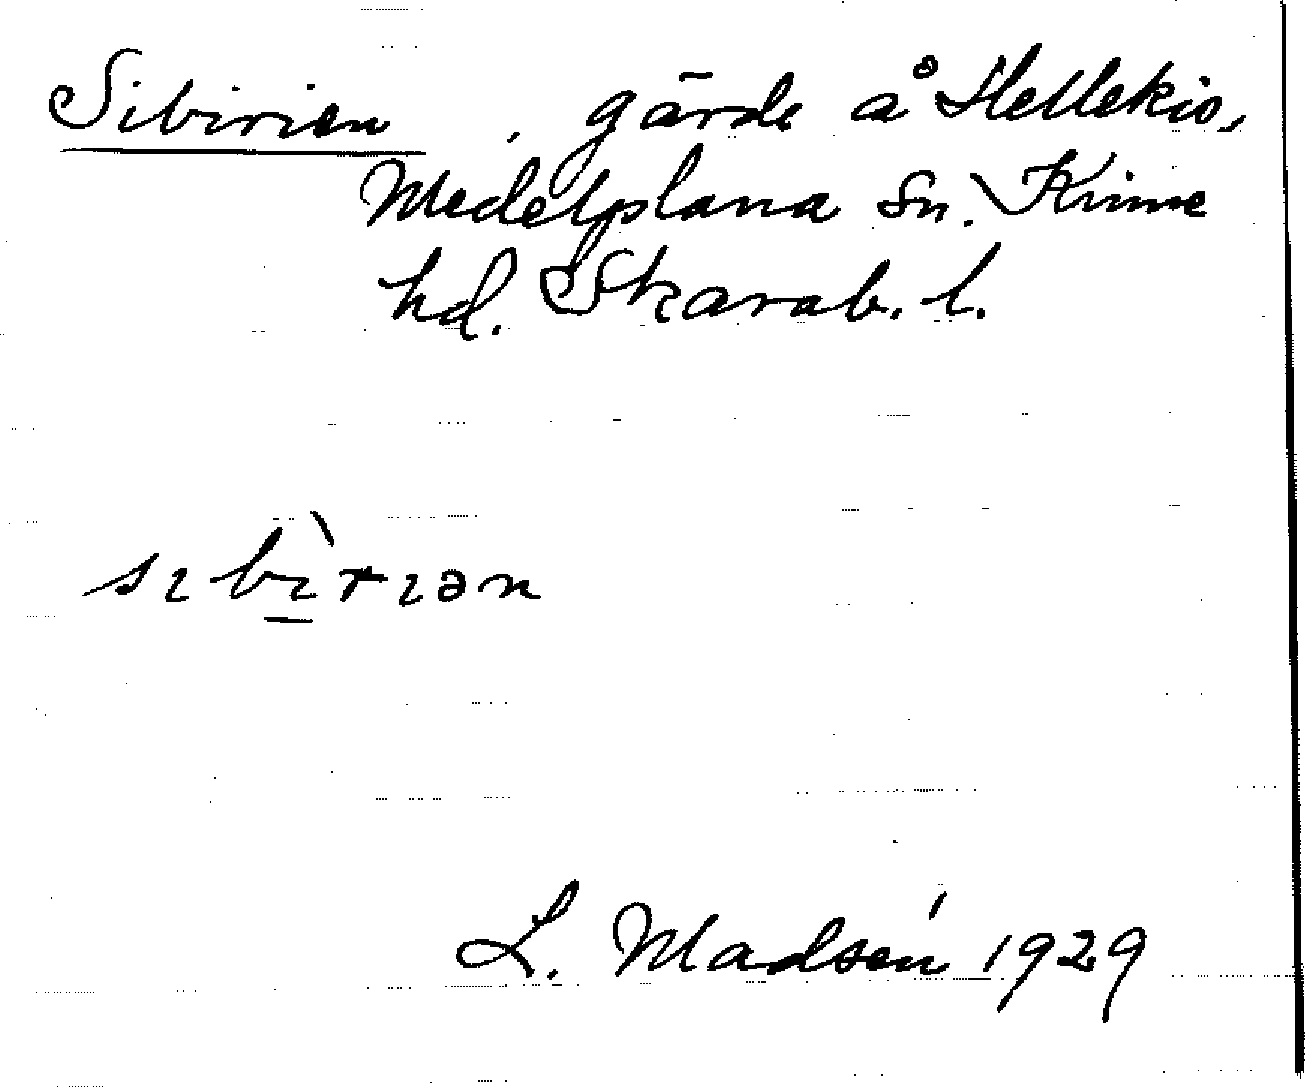 Sibirien , gärde å Hellekis,
Medelplana sn. Kinne
hd. Skarab. l.
sıbı̠̀rıən
L. Madsén 1929